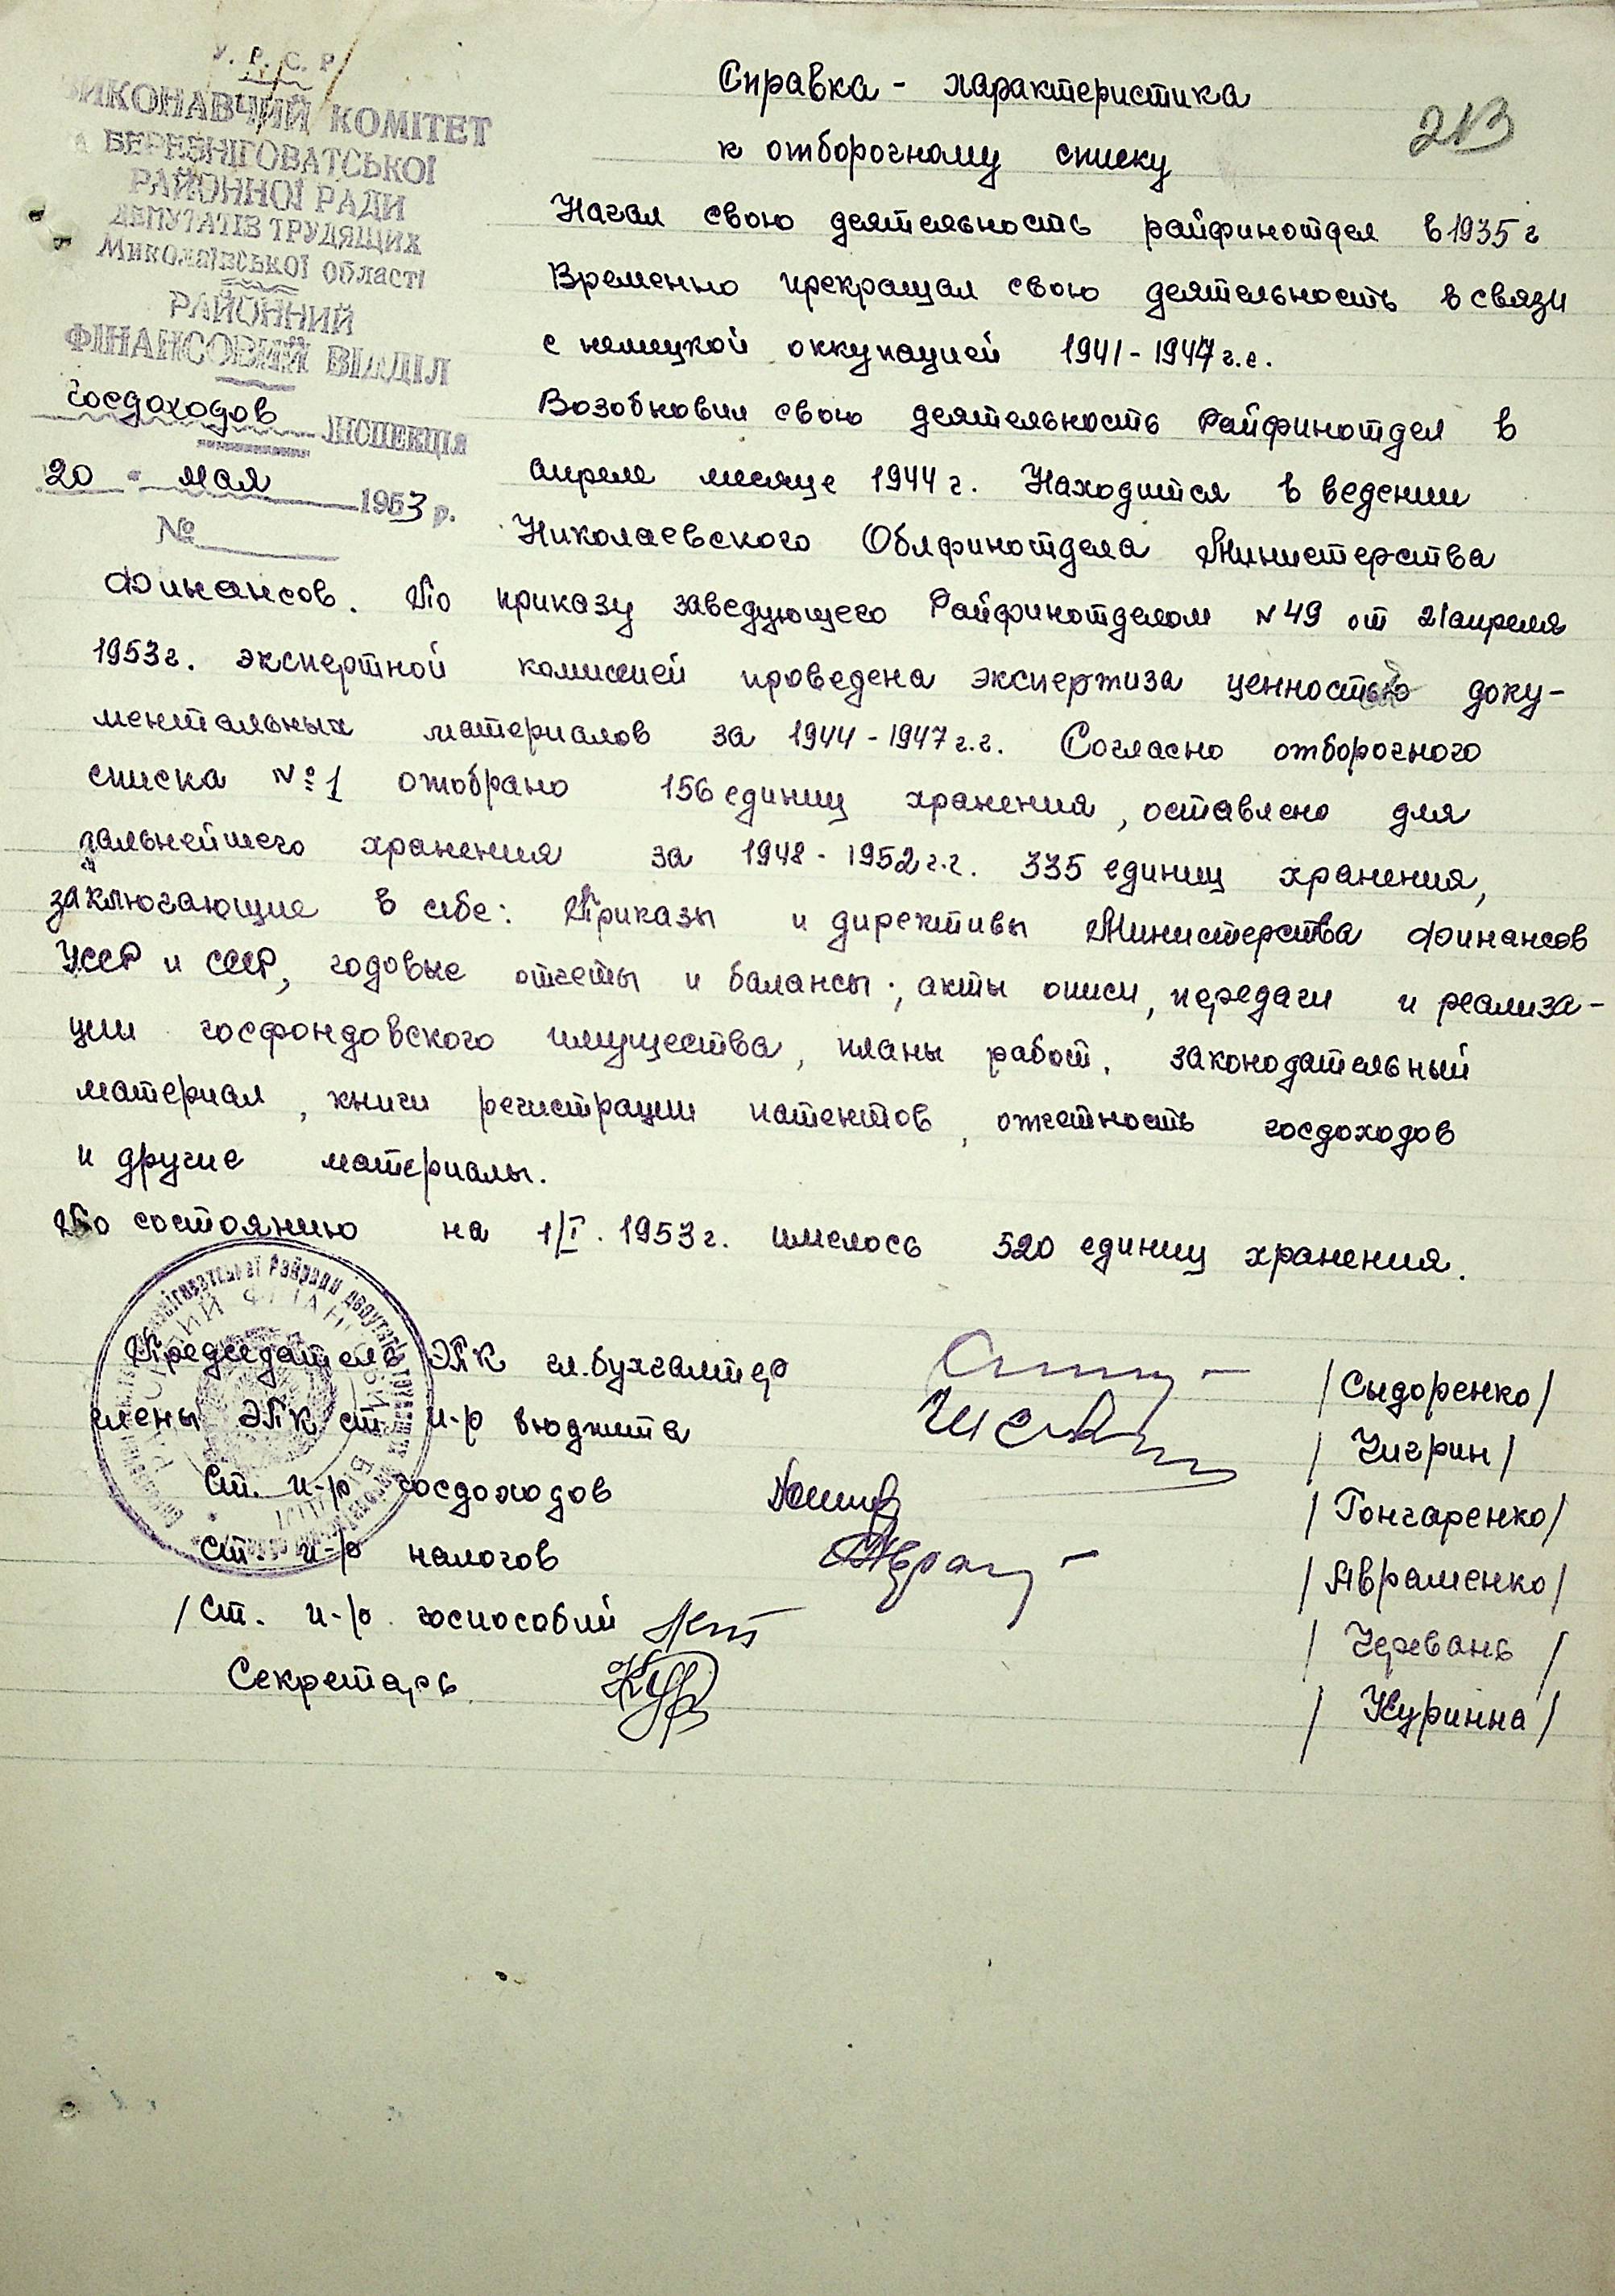 У. Р. С. Р
ВИКОНАВЧИЙ КОМІТЕТ
БЕРЕЗНІГОВАТСЬКОЇ
РАЙОННОЇ РАДИ
ДЕПУТАТІВ ТРУДЯЩИХ
Миколаївської області
РАЙОННИЙ
ФІНАНСОВИЙ ВІДДІЛ
госдоходов ІНСПЕКЦІЯ
20 " мая 1953 р.
№
213
Справка - характеристика
к отборочному списку
Начал свою деятельность райфинотдел в 1935 г
Временно прекращал свою деятельность в связи
с немецкой оккупацией 1941 - 1944 г.г.
Возобновил свою деятельность Райфинотдел в
апреле месяце 1944 г. Находится в ведении
Николаевского Облфинотдела Министерства
Финансов. По приказу заведующего Райфинотделом N 49 от 21 апреля
1953 г. экспертной комиссией проведена экспертиза ценностью доку-
ментальных материалов за 1944 - 1947 г.г. Согласно отборочного
списка № 1 отобрано 156 единиц хранения, оставлено для
дальнейшего хранения за 1948 - 1952 г.г. 335 единиц хранения,
заключающие в себе: Приказы и директивы Министерства Финансов
УССР и СССР, годовые отчеты и балансы; акты описи, передачи и реализа-
ции госфондовского имущества, планы работ, законодательный
материал, книги регистрации патентов, отчетность госдоходов
и другие материалы.
По состоянию на 1/I. 1953 г. имелось 520 единиц хранения.
Председатель ЭПК гл. бухгалтер /Сыдоренко/
члены ЭПК ст. и-р бюджета / Чигрин /
Ст. и-р госдоходов / Гончаренко/
Ст. и-р налогов / Авраменко/
/ Ст. и-р. госпособий / Черевань /
Секретарь / Куринна /